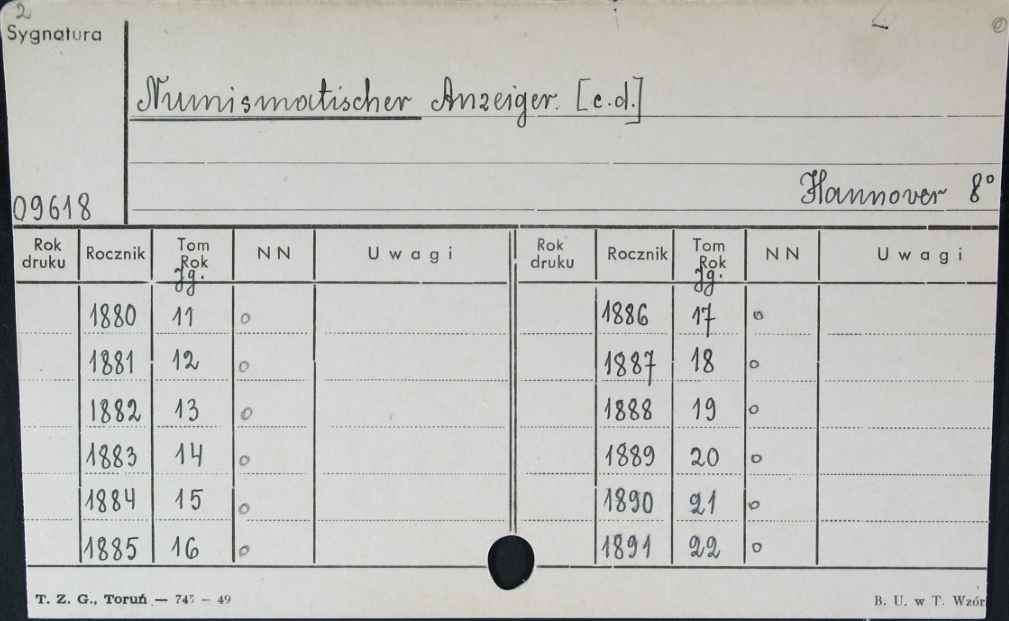 2
Sygnatura
Numismatischer Anzeiger. [c.d.]
Hannover 8°
09618
Rok druku Rocznik Tom Rok Jg. NN Uwagi Rok druku Rocznik Tom Rok Jg. NN Uwagi
1880 11 o 1886 17 o
1881 12 o 1887 18 o
1882 13 o 1888 19 o
1883 14 o 1889 20 o
1884 15 o 1890 21 o
1885 16 o 1891 22 o
T. Z. G., Toruń — 745 — 49 B. U. w T. Wzór